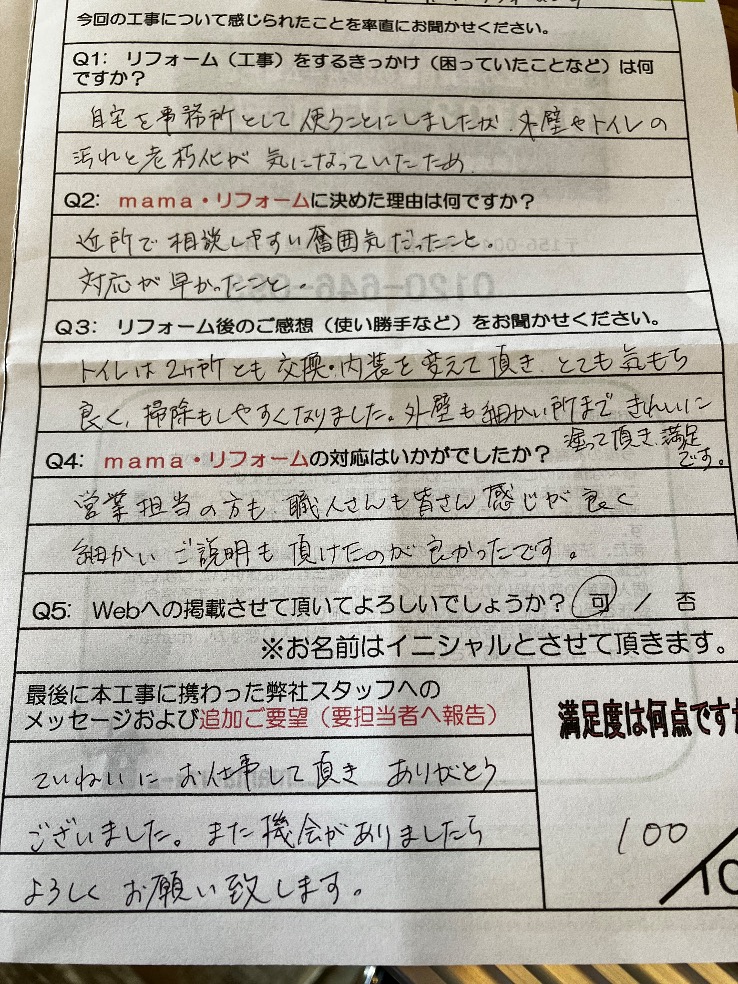 今回の工事について感じられたことを率直にお聞かせください。
Q1: リフォーム（工事）をするきっかけ（困っていたことなど）は何
ですか？
自宅を事務所として使うことにしましたが、外壁やトイレの
汚れと老朽化が気になっていたため
Q2: mama・リフォームに決めた理由は何ですか？
近所で相談しやすい雰囲気だったこと。
対応が早かったこと。
Q3: リフォーム後のご感想（使い勝手など）をお聞かせください。
トイレは2ヶ所とも交換・内装を変えて頂き、とても気もち
良く、掃除もしやすくなりました。外壁も細かい所まできれいに
塗って頂き、満足
です。
Q4: mama・リフォームの対応はいかがでしたか？
営業担当の方も、職人さんも皆さん感じが良く
細かいご説明も頂けたのが良かったです。
Q5: Webへの掲載させて頂いてよろしいでしょうか？ 可 / 否
※お名前はイニシャルとさせて頂きます。
最後に本工事に携わった弊社スタッフへの
メッセージおよび追加ご要望（要担当者へ報告）
満足度は何点ですか
ていねいにお仕事して頂き ありがとう
ございました。また機会がありましたら
よろしくお願い致します。
100
/10